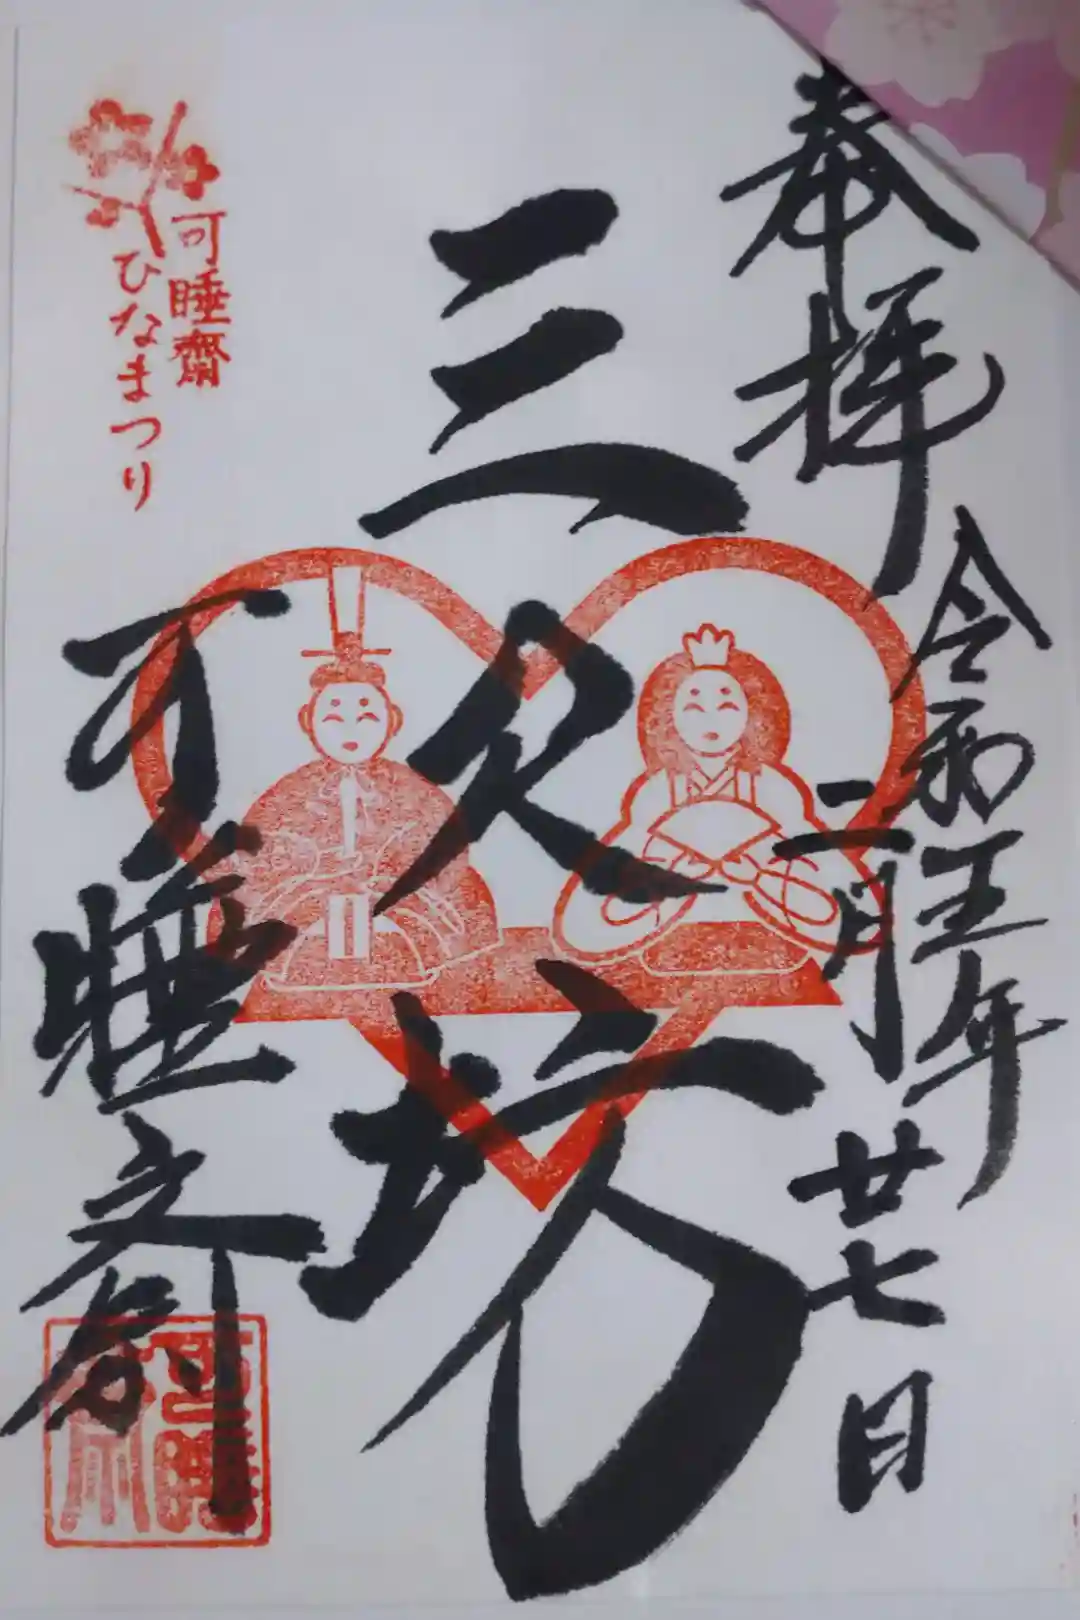 奉拝
令和五年
二月廿七日
三尺坊
可睡齋
可睡齋
ひなまつり